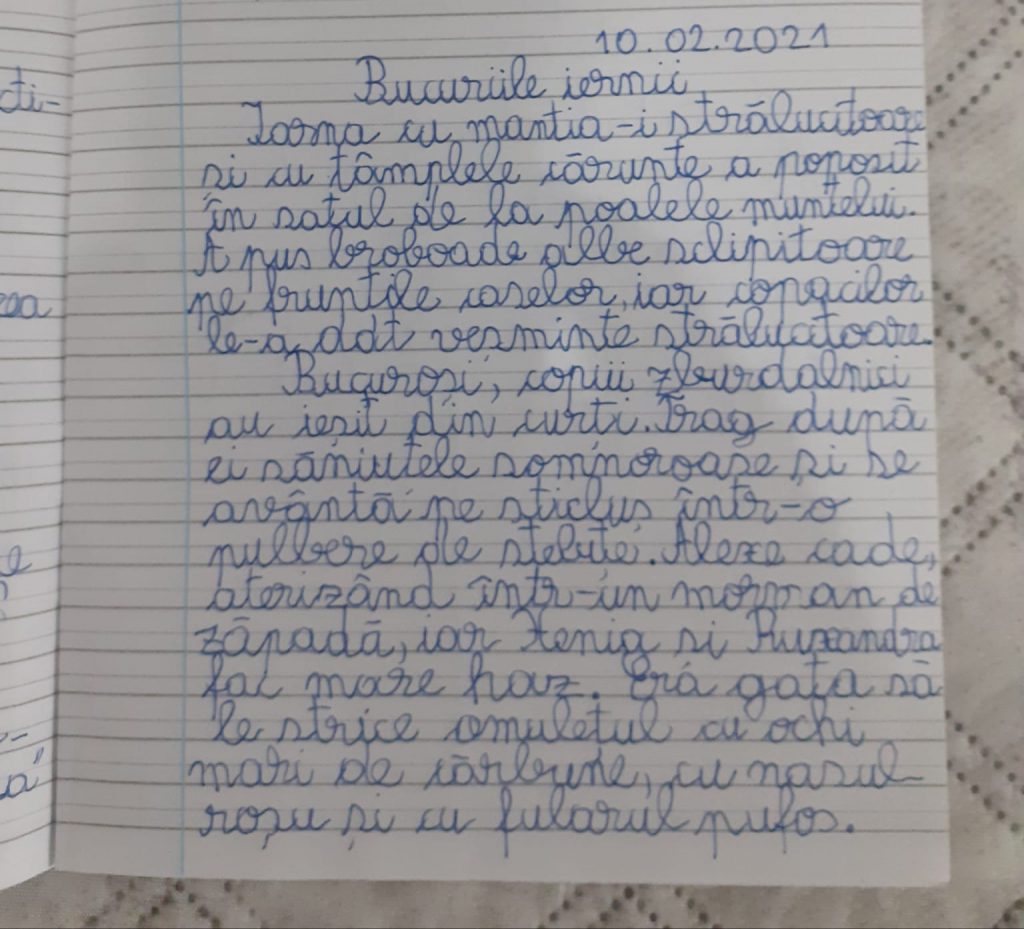 10.02.2021
Bucuriile iernii
Iarna cu mantia-i strălucitoare
și cu tâmplele cărunte a poposit
în satul de la poalele muntelui.
A pus broboade albe sclipitoare
pe frunțile caselor, iar copacilor
le-a dat veșminte strălucitoare.
Bucuroși, copiii zburdalnici
au ieșit din curți. Trag după
ei săniuțele somnoroase și se
avântă pe sticluș într-o
pulbere de steluțe. Alexe cade,
aterizând într-un morman de
zăpadă, iar Xenia și Ruxandra
fac mare haz. Era gata să
le strice omulețul cu ochi
mari de cărbune, cu nasul
roșu și cu fularul pufos.
di-
ea
e